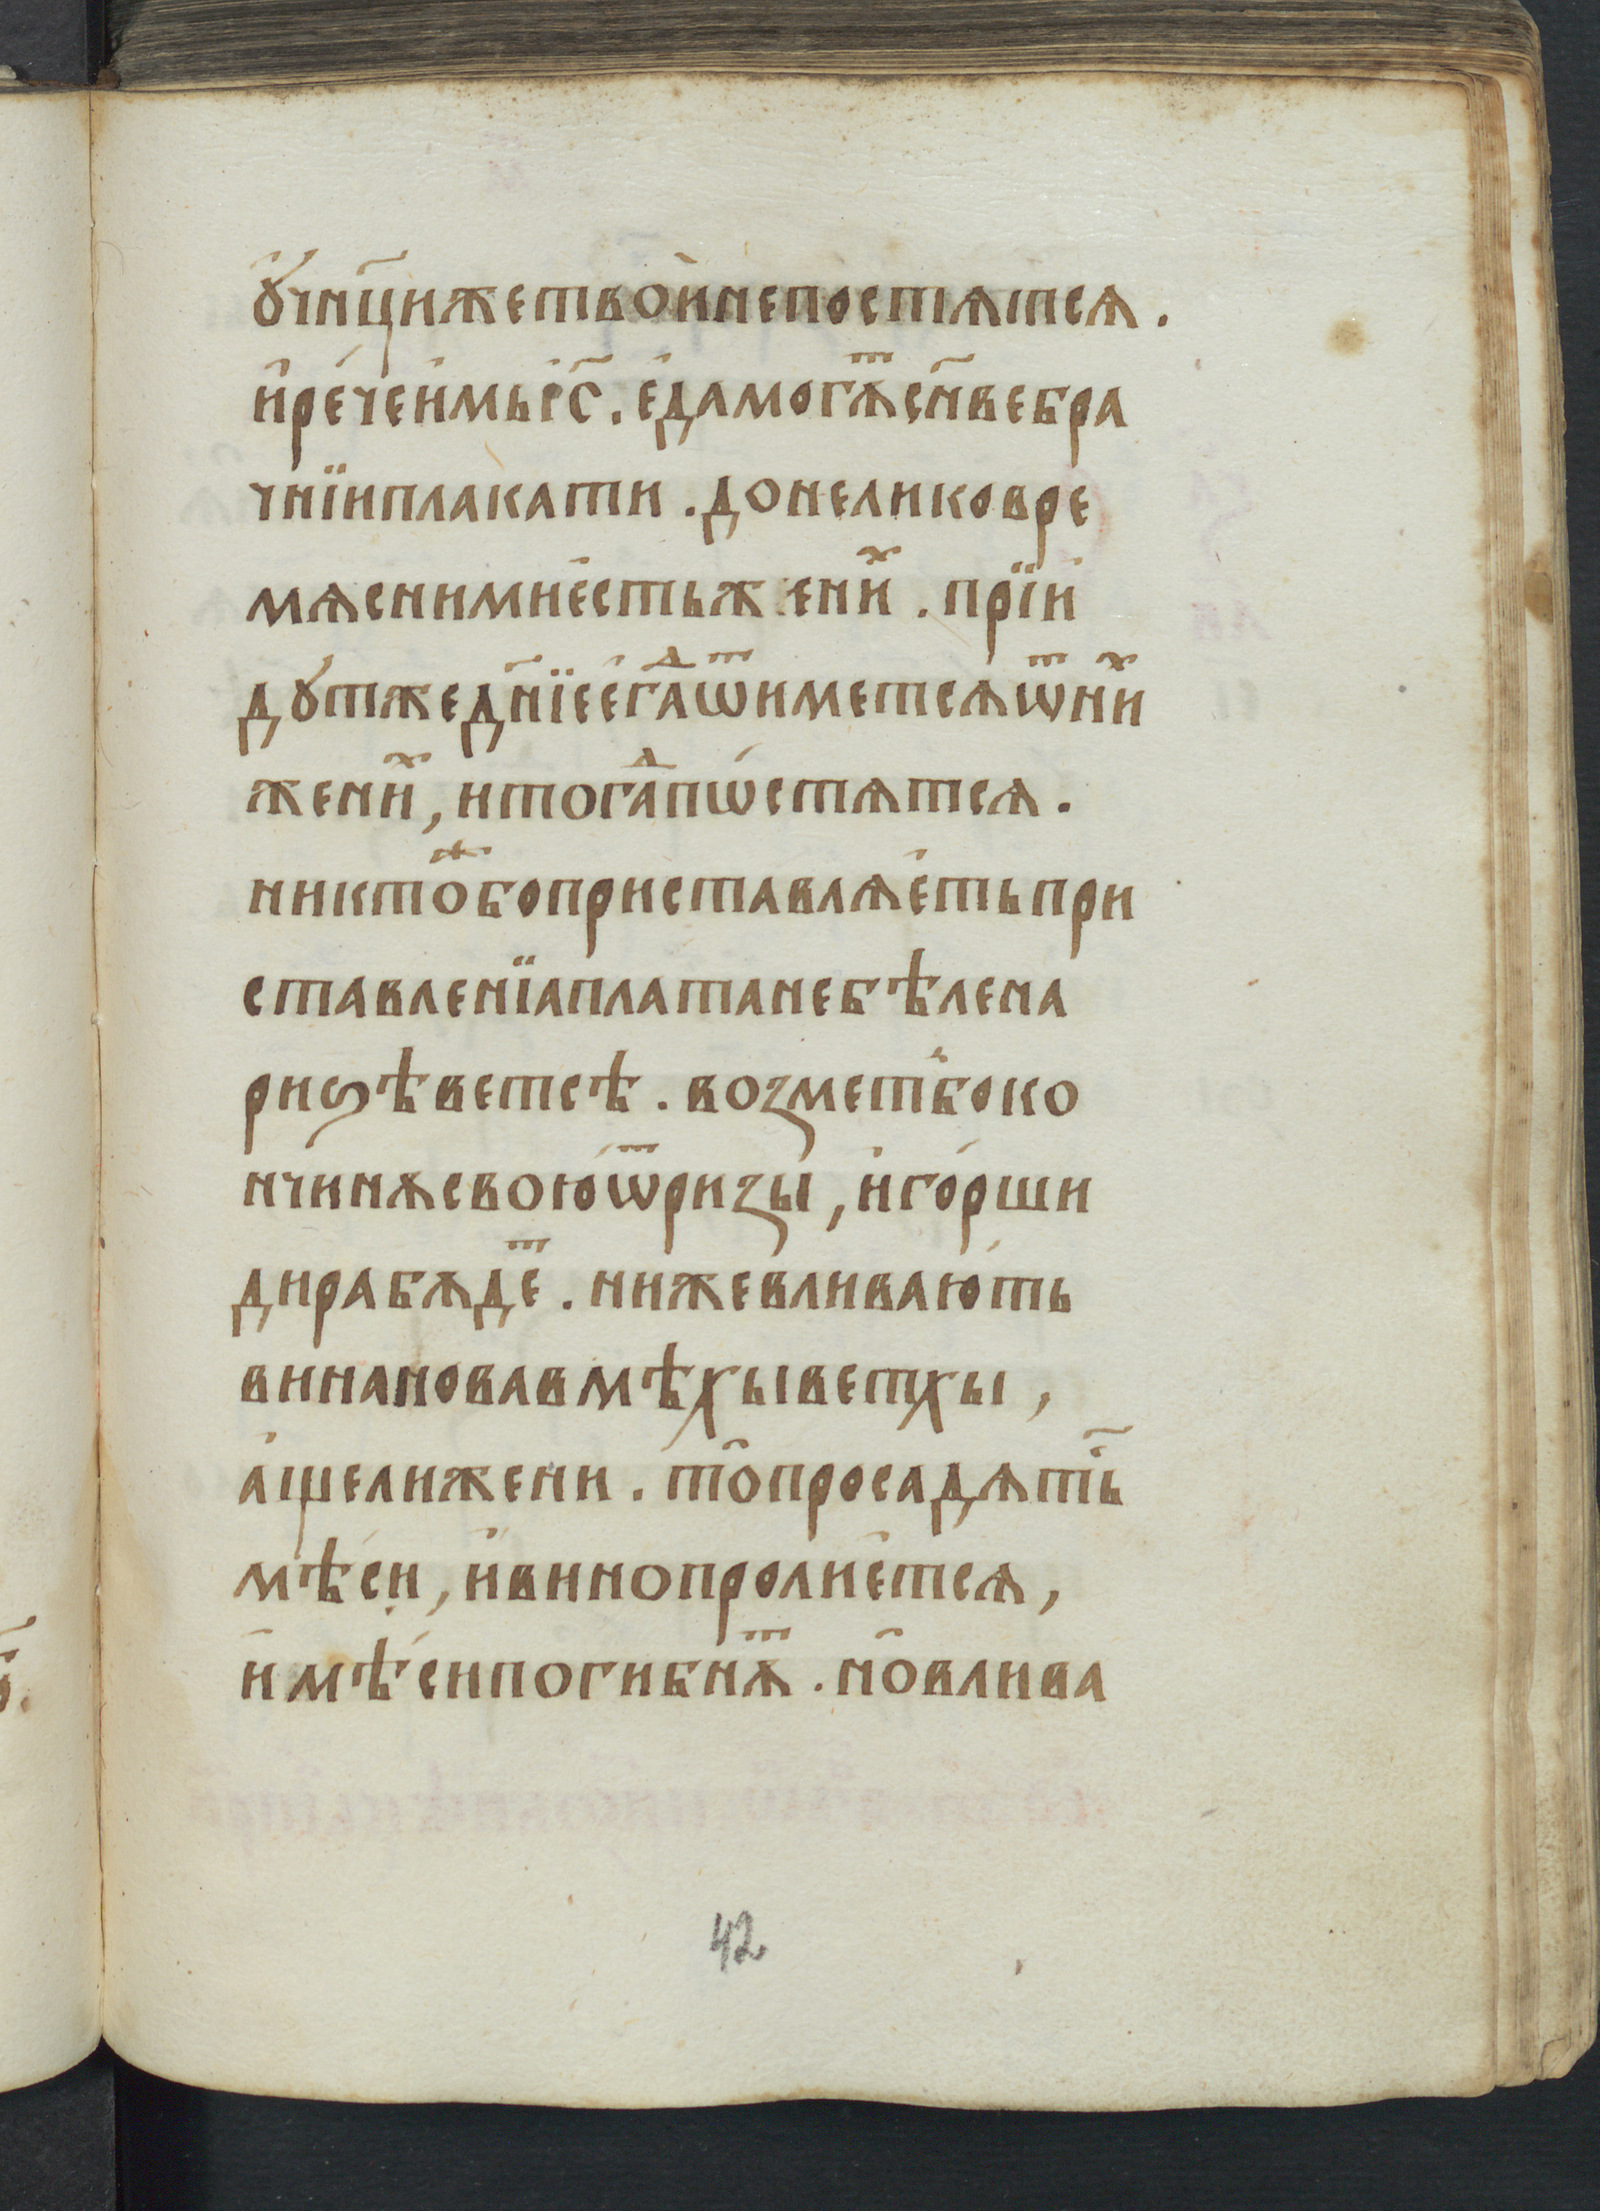 ꙋ҆чн҃цижетвои҆непостѧтсѧ .
и҆ре́чеи҆мьі҆с҃ . е҆дамогѫⷮсн҃вебра
чнїиплакати . донеликовре
мѧснимие҆стьженⷯи . прїи҆
дꙋтжедн҃їее҆гⷣаѿиметсѧѿнⷯи
женⷯи , итогⷣапѡ́стѧтсѧ .
никтⷤобоприставлѧе҆тьпри
ставленїаплатанебѣлена
риѕѣветсѣ . возметⸯбоко
нчинѫсвоюѿризы , и҆го́рши
дирабѫдеⷮ . нижевливаю́ть
винановавмѣхыветхы ,
а҆щелижени . то҆просадѧтьⸯ
мѣси , и҆винопролие҆тсѧ ,
и҆мѣсипогибнѫⷮ . но҆влива
42